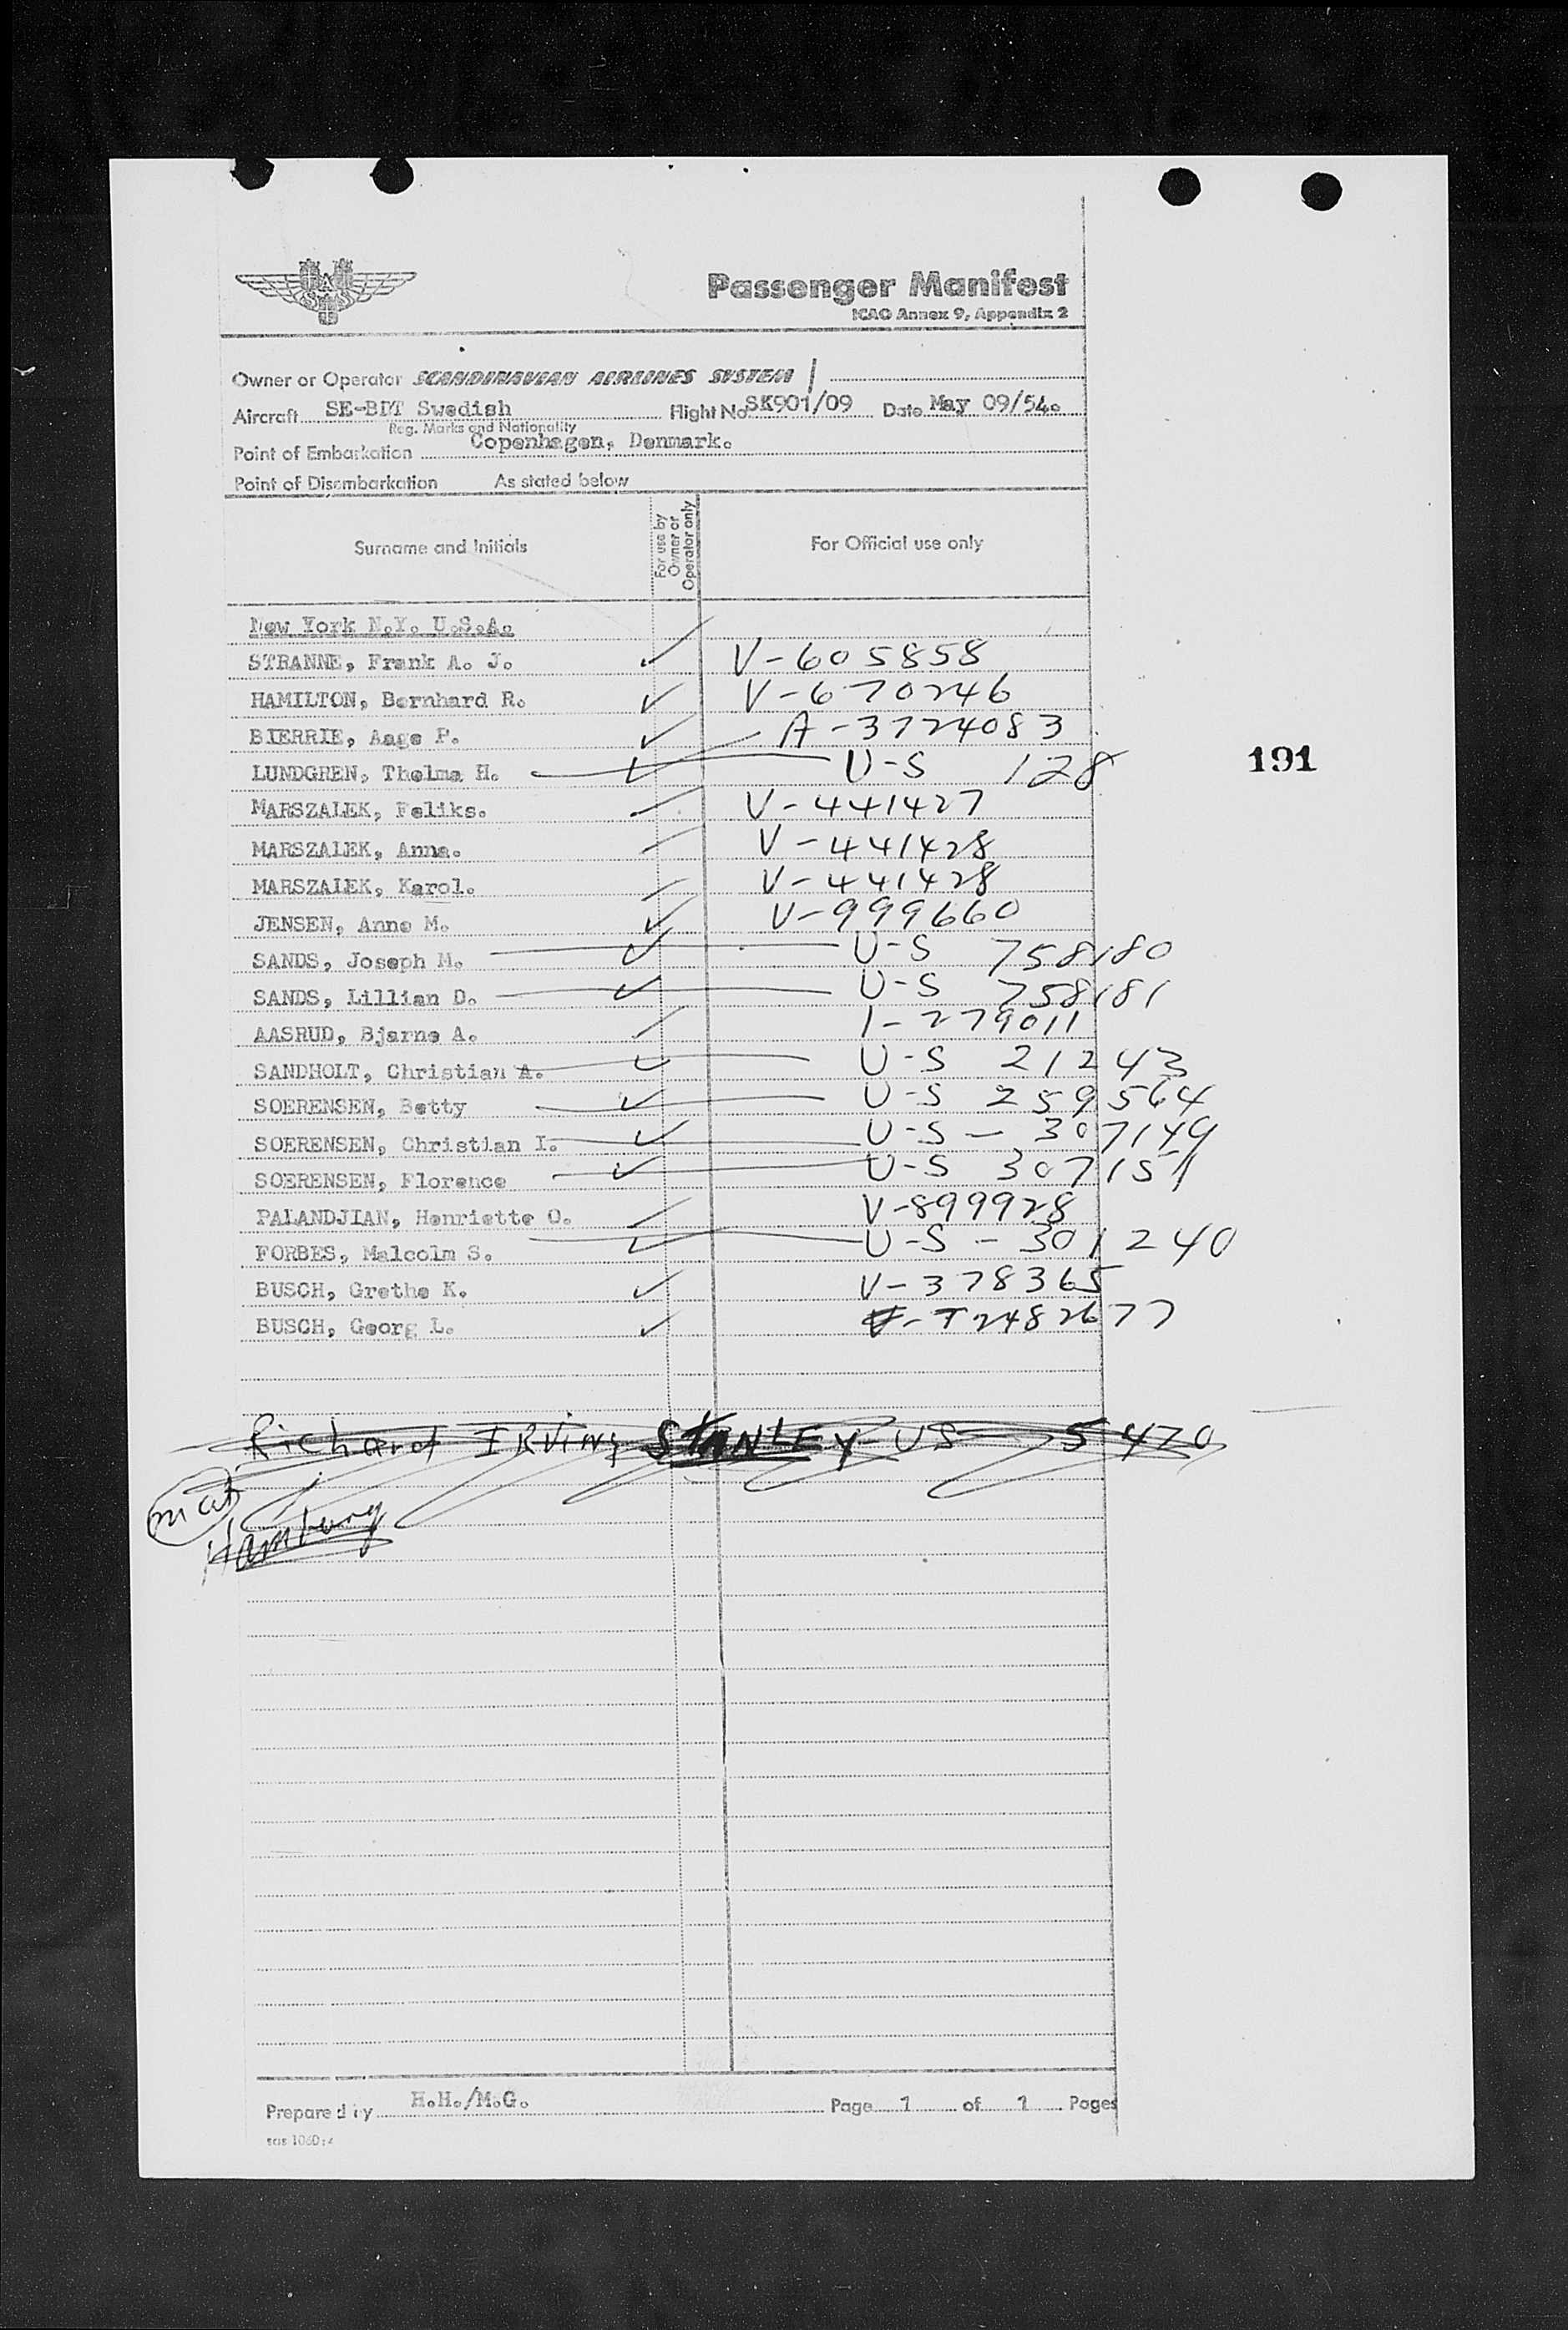 SAS
Passenger Manifest
ICAO Annex 9, Appendix 2
Owner or Operator SCANDINAVIAN AIRLINES SYSTEM
Aircraft SE-BDT Swedish Flight No SK901/09 Date May 09/54.
Reg. Marks and Nationality
Point of Embarkation Copenhagen, Denmark.
Point of Disembarkation As stated below
Surname and Initials For use by Owner or Operator only For Official use only
New York N.Y. U.S.A.
STRANNE, Frank A. J. V-605858
HAMILTON, Bernhard R. V-670246
BIERRIE, Aage P. A-3724083
LUNDGREN, Thelma H. U-S 128
191
MARSZALEK, Feliks. V-441427
MARSZALEK, Anna. V-441428
MARSZALEK, Karol. V-441428
JENSEN, Anne M. V-999660
SANDS, Joseph M. U-S 758180
SANDS, Lillian D. U-S 758181
AASRUD, Bjarne A. 1-279011
SANDHOLT, Christian A. U-S 21243
SOERENSEN, Betty U-S 259564
SOERENSEN, Christian I. U-S - 307149
SOERENSEN, Florence U-S 307151
PALANDJIAN, Henriette O. V-899928
FORBES, Malcolm S. U-S - 301240
BUSCH, Grethe K. V-378365
BUSCH, Georg L. V-T2482677
Richard IRVING STANLEY US 5420
Hamburg
Prepared by H.H./M.G. Page 1 of 1 Pages